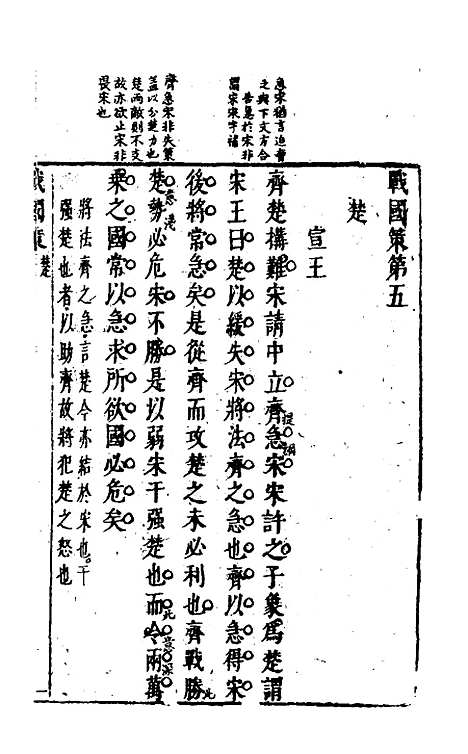 急宋猶言迫脅
之與下文方合
告急於宋非
謂宋宋字補
齊急宋非失策
蓋以分楚力也
楚兩敵則不支
故亦欲止宋非
畏宋也
戰國策第五
楚
宣王
齊楚構難宋請中立齊急宋宋許之子象爲楚謂
提綱
宋王曰楚以緩失宋將法齊之急也齊以急得宋
後將常急矣是從齊而攻楚之未必利也齊戰勝
楚勢必危宋不勝是以弱宋干强楚也而令兩萬
此意深
乘之國常以急求所欲國必危矣
將法齊之急言楚今亦結於宋也。干
强楚也者以助齊故將犯楚之怒也
戰國策 楚 一